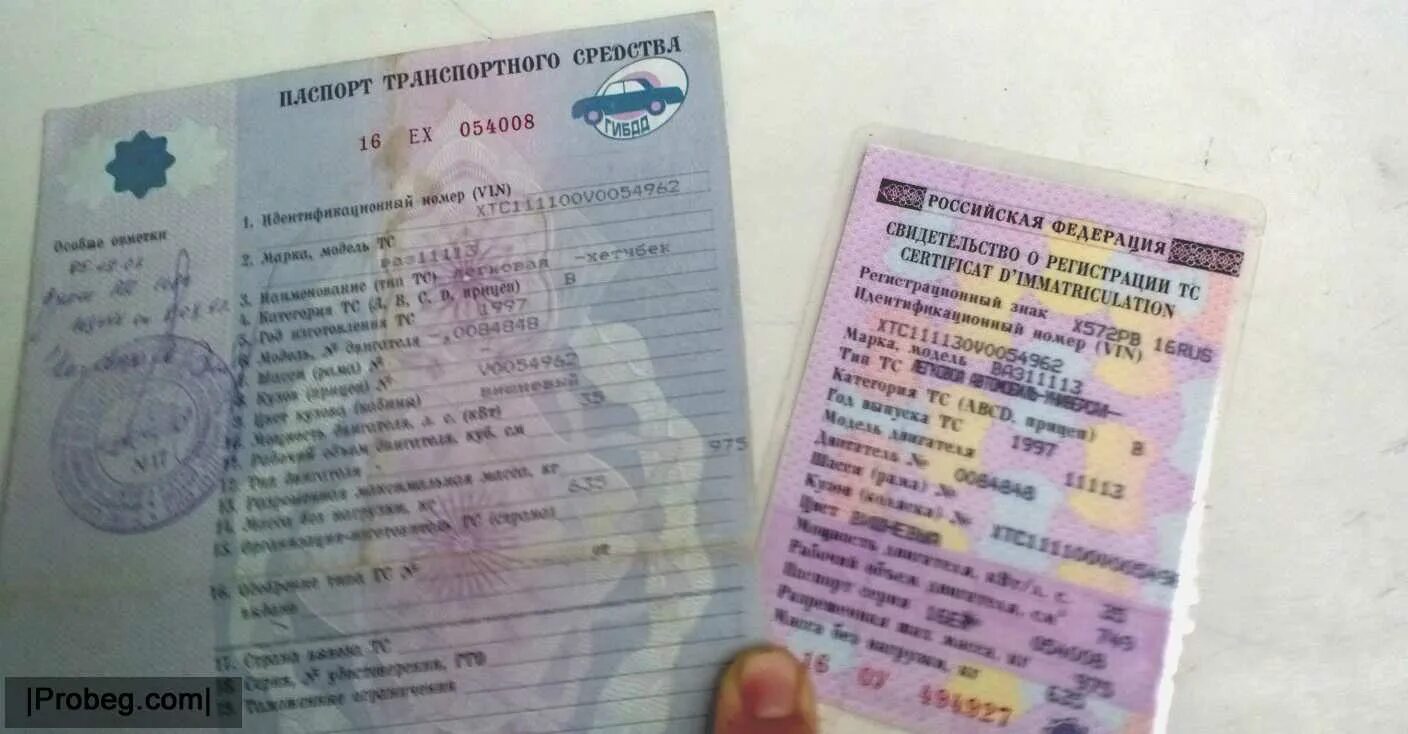 ПАСПОРТ ТРАНСПОРТНОГО СРЕДСТВА
16 ЕХ 054008
ГИБДД
Особые отметки
№17
1. Идентификационный номер (VIN)
XTC111100V0054962
2. Марка, модель ТС
ВАЗ11113
3. Наименование (тип ТС) легковая -хетчбек
4. Категория ТС (А, В, С, D, прицеп) В
5. Год изготовления ТС 1997
6. Модель, № двигателя -,0084848
7. Шасси (рама) № -
8. Кузов (прицеп) № V0054962
9. Цвет кузова (кабины) вишневый
10. Мощность двигателя, л. с. (кВт) 35
11. Рабочий объем двигателя, куб. см
12. Тип двигателя
13. Разрешенная максимальная масса, кг 975
14. Масса без нагрузки, кг 635
15. Организация-изготовитель ТС (страна)
16. Одобрение типа ТС № от
выдано
17. Страна вывоза ТС
18. Серия, № удостоверения, ГТД
19. Таможенные ограничения
РОССИЙСКАЯ ФЕДЕРАЦИЯ
СВИДЕТЕЛЬСТВО О РЕГИСТРАЦИИ ТС
CERTIFICAT D'IMMATRICULATION
Регистрационный знак Х572РВ 16RUS
Идентификационный номер (VIN)
XTC111130V0054962
Марка, модель ВАЗ11113
Тип ТС ЛЕГКОВОЙ АВТОМОБИЛЬ-УНИВЕРСАЛ
Категория ТС (ABCD, прицеп) В
Год выпуска ТС 1997
Модель двигателя 11113
Двигатель № 0084848
Шасси (рама) №
Кузов (коляска) № XTC111100V00549
Цвет ВИШНЕВЫЙ
Мощность двигателя, кВт/л. с. 25
Рабочий объем двигателя, см³ 749
Паспорт серия 16ЕХ 054008
Разрешенная max масса, кг 975
Масса без нагрузки, кг 625
16 07 494927
|Probeg.com|